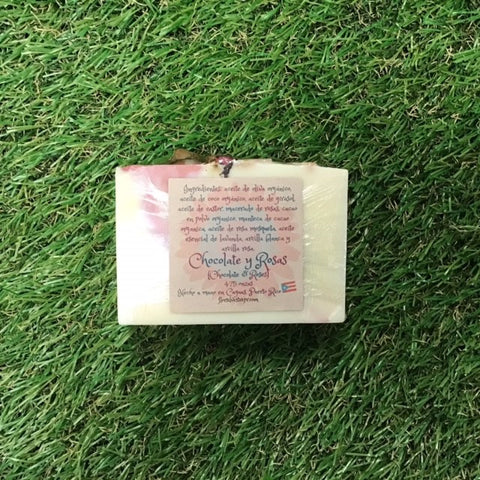 Ingredientes: aceite de oliva organico,
aceite de coco organico, aceite de girasol,
aceite de castor, macerado de rosas, cacao
en polvo organico, manteca de cacao
organica, aceite de rosa mosqueta, aceite
esencial de lavanda, arcilla blanca y
arcilla rosa.
Chocolate y Rosas
(Chocolate & Roses)
4.75 onzas
Hecho a mano en Caguas, Puerto Rico